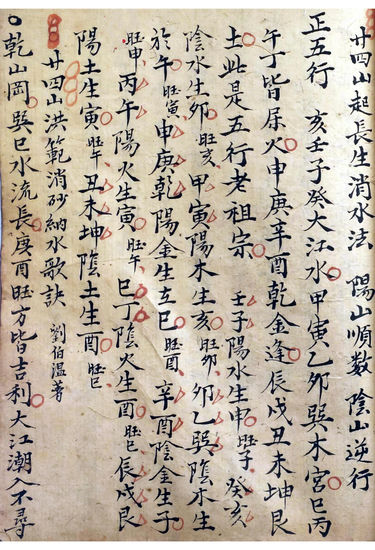 廿四山起長生消水法 陽山順数 陰山逆行
正五行 亥壬子癸大江水甲寅乙卯巽木宮巳丙
午丁皆属火申庚辛酉乾金逢辰戌丑未坤艮
土此是五行老祖宗 壬子陽水生申旺子癸亥
陰水生卯旺亥甲寅陽木生亥旺卯卯乙巽陰木生
於午旺寅申庚乾陽金生立巳旺酉辛酉陰金生子
旺申丙午陽火生寅旺午巳丁陰火生酉旺巳辰戌艮
陽土生寅旺午丑未坤陰土生酉旺巳
廿四山洪範消砂納水歌訣 劉伯温著
乾山岡巽巳水流長庚酉旺方皆吉利大江潮入不尋